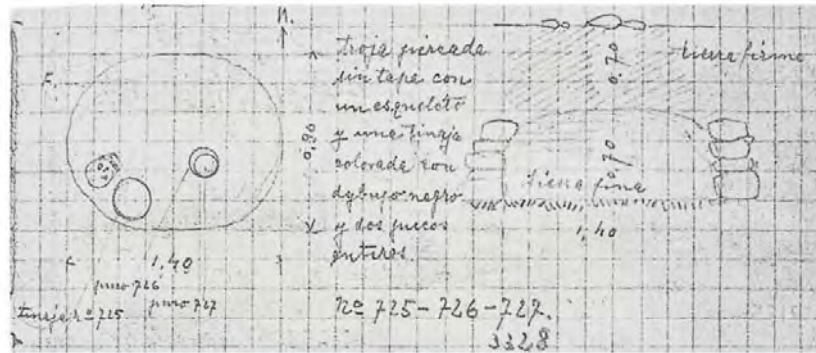 N.
E.
0,90
1,40
puco 726
puco 727
tinaja nº 725
troja pircada
sin tapa con
un esqueleto
y una tinaja
colorada con
dybujo negro
y dos pucos
enteros.
nº 725-726-727.
3328
0.70
tierra firme
0.70
tierra fina
1,40